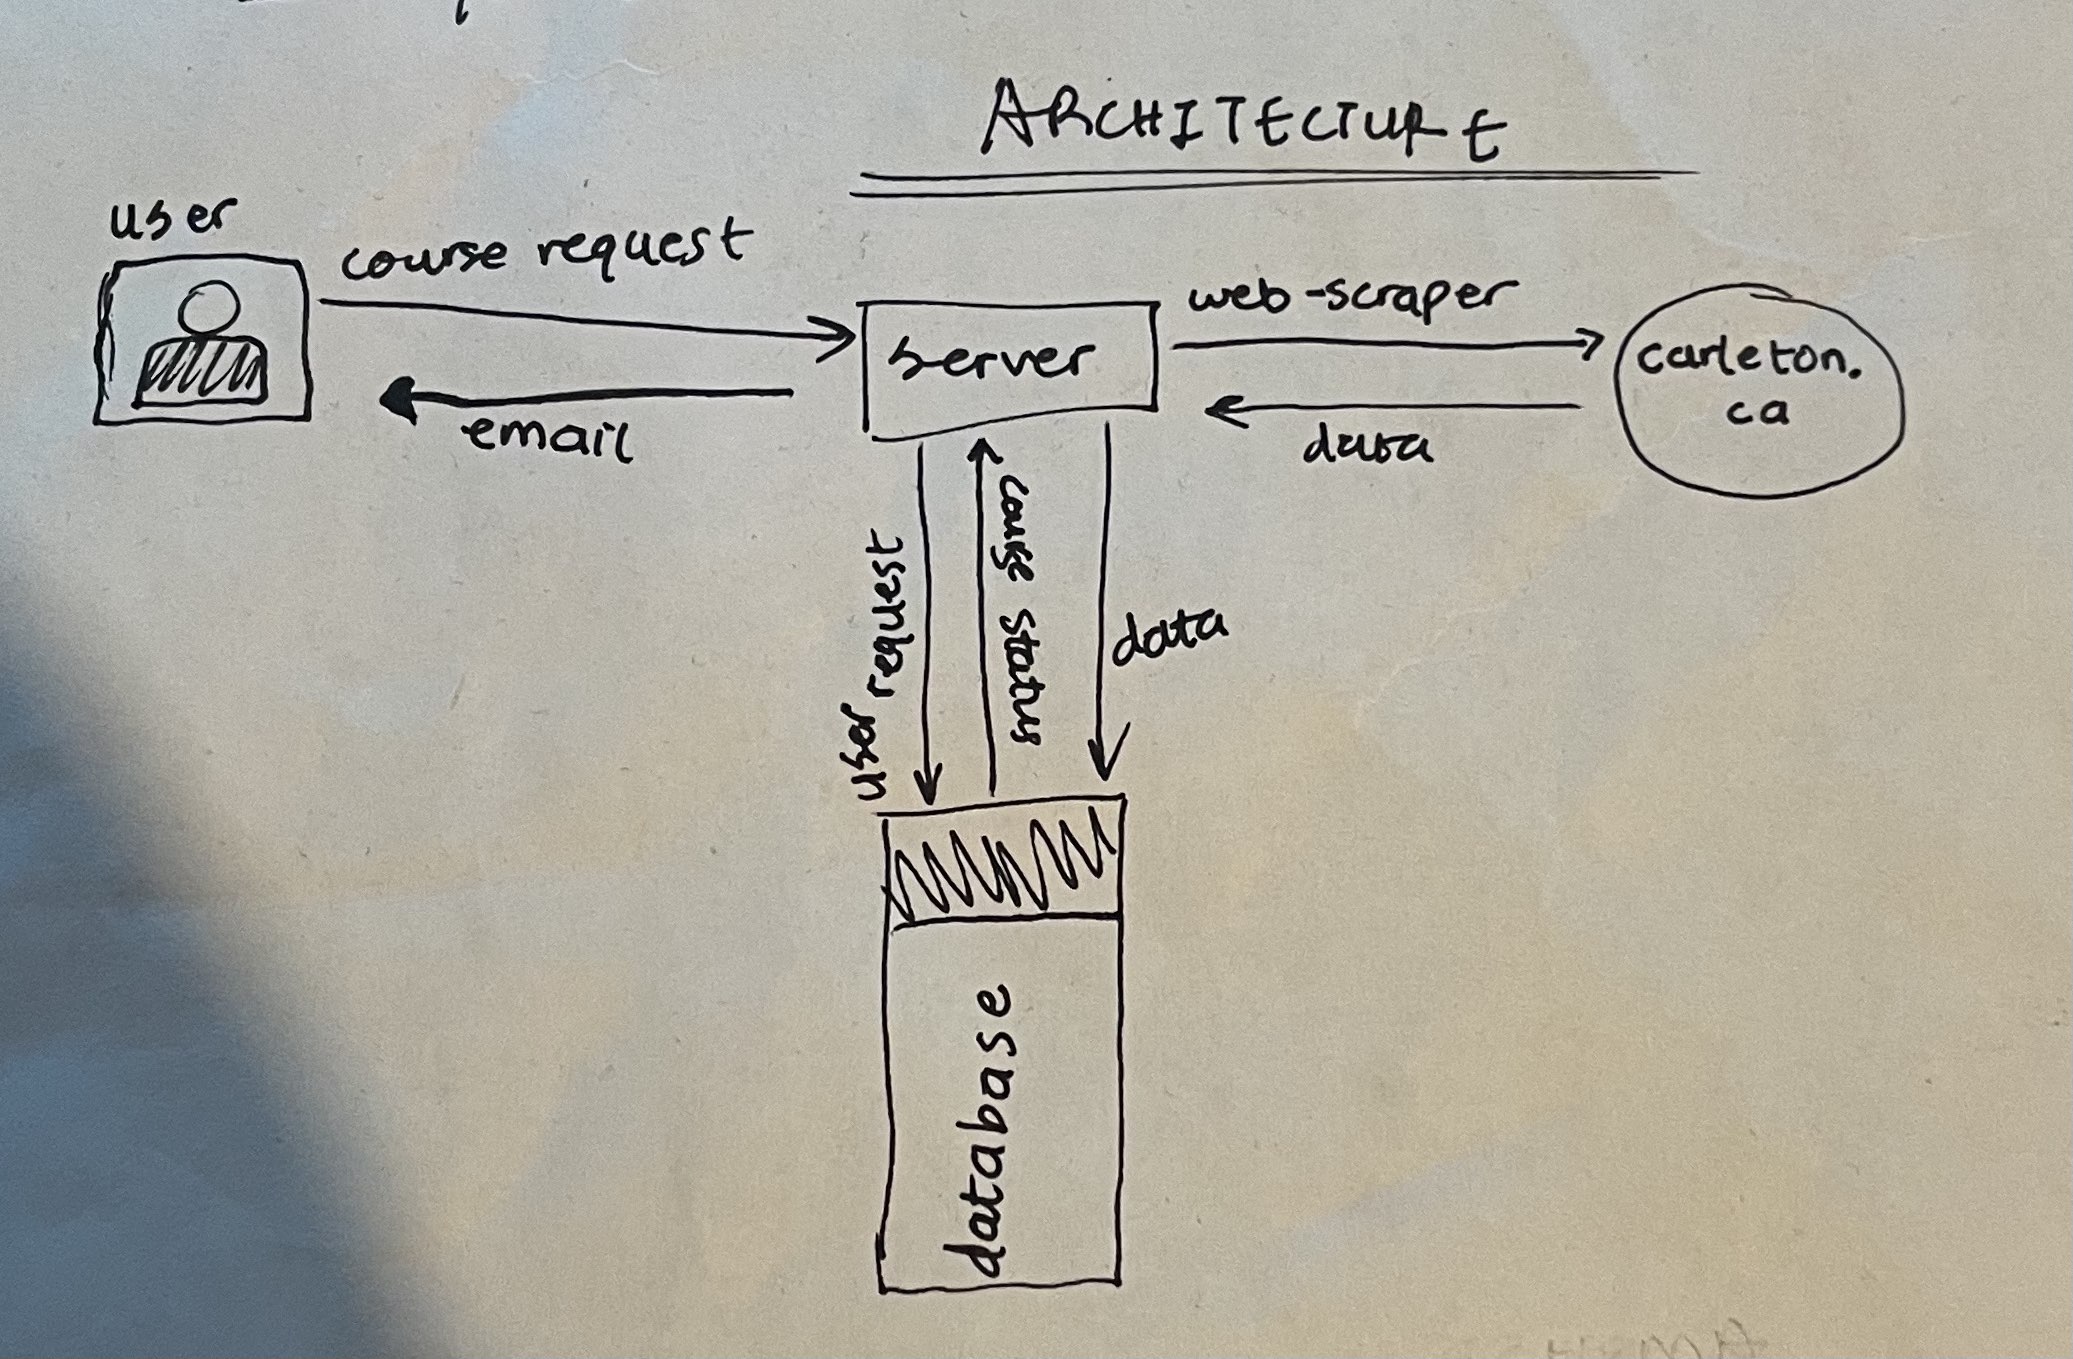 ARCHITECTURE
user
course request
email
server
web-scraper
data
carleton.
ca
user request
course status
data
database